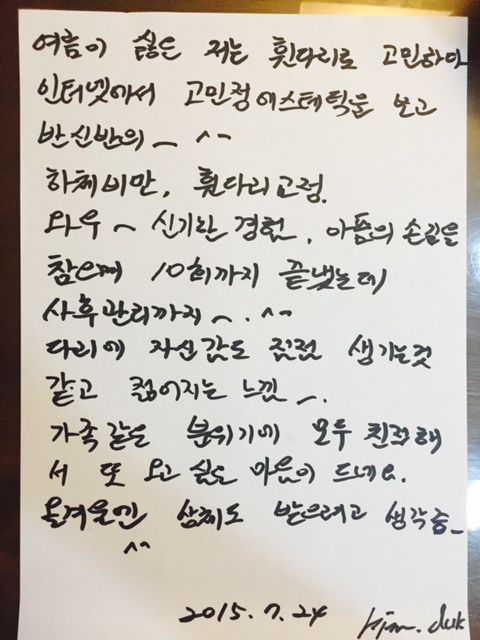 여름이 싫은 저는 휫다리로 고민하다
인터넷에서 고민정에스테틱을 보고
반신반의 ~ ^^
하체비만, 휫다리교정.
와우 ~ 신기한 경험, 아픔의 손길을
참으며 10회까지 끝냈는데
사후관리까지 ~. ^^
다리에 자신감도 점점 생기는것
같고 젊어지는 느낌 ~.
가족같은 분위기에 모두 친절해
서 또 오고 싶은 마음이 드네요.
올겨울엔 상체도 받으려고 생각중_
^^
2015. 7. 24 Kim. duk